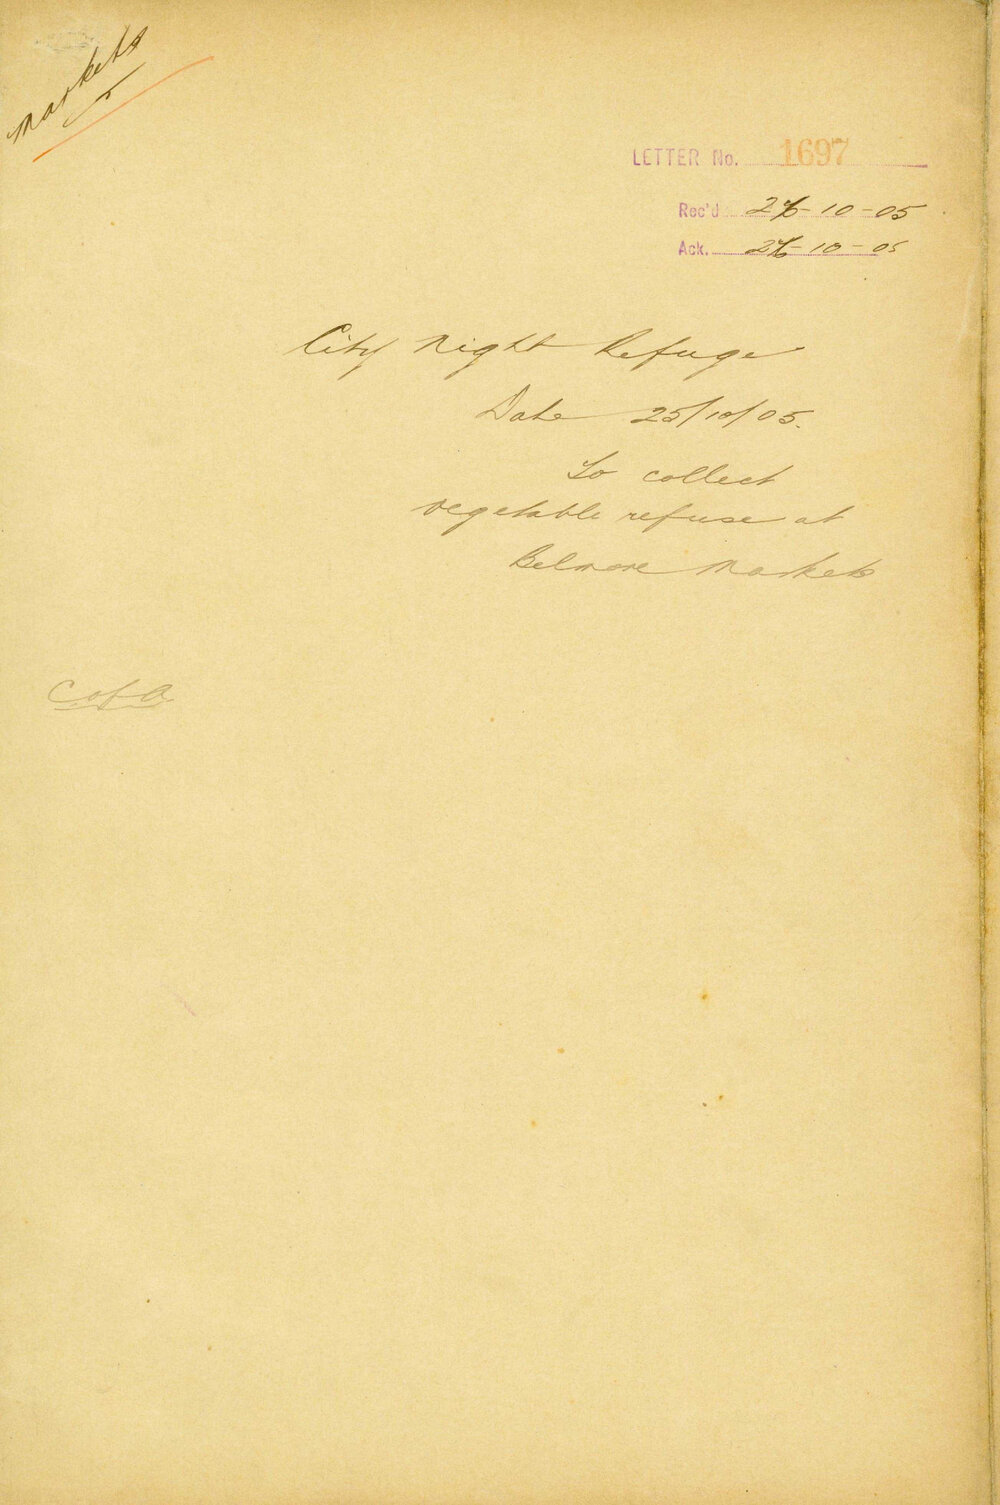 Markets
LETTER No. 1697
Rec'd 26-10-05
Ack. 26-10-05
City Night Refuge
Date 25/10/05.
To collect
vegetable refuse at
Belmore Markets
C of A